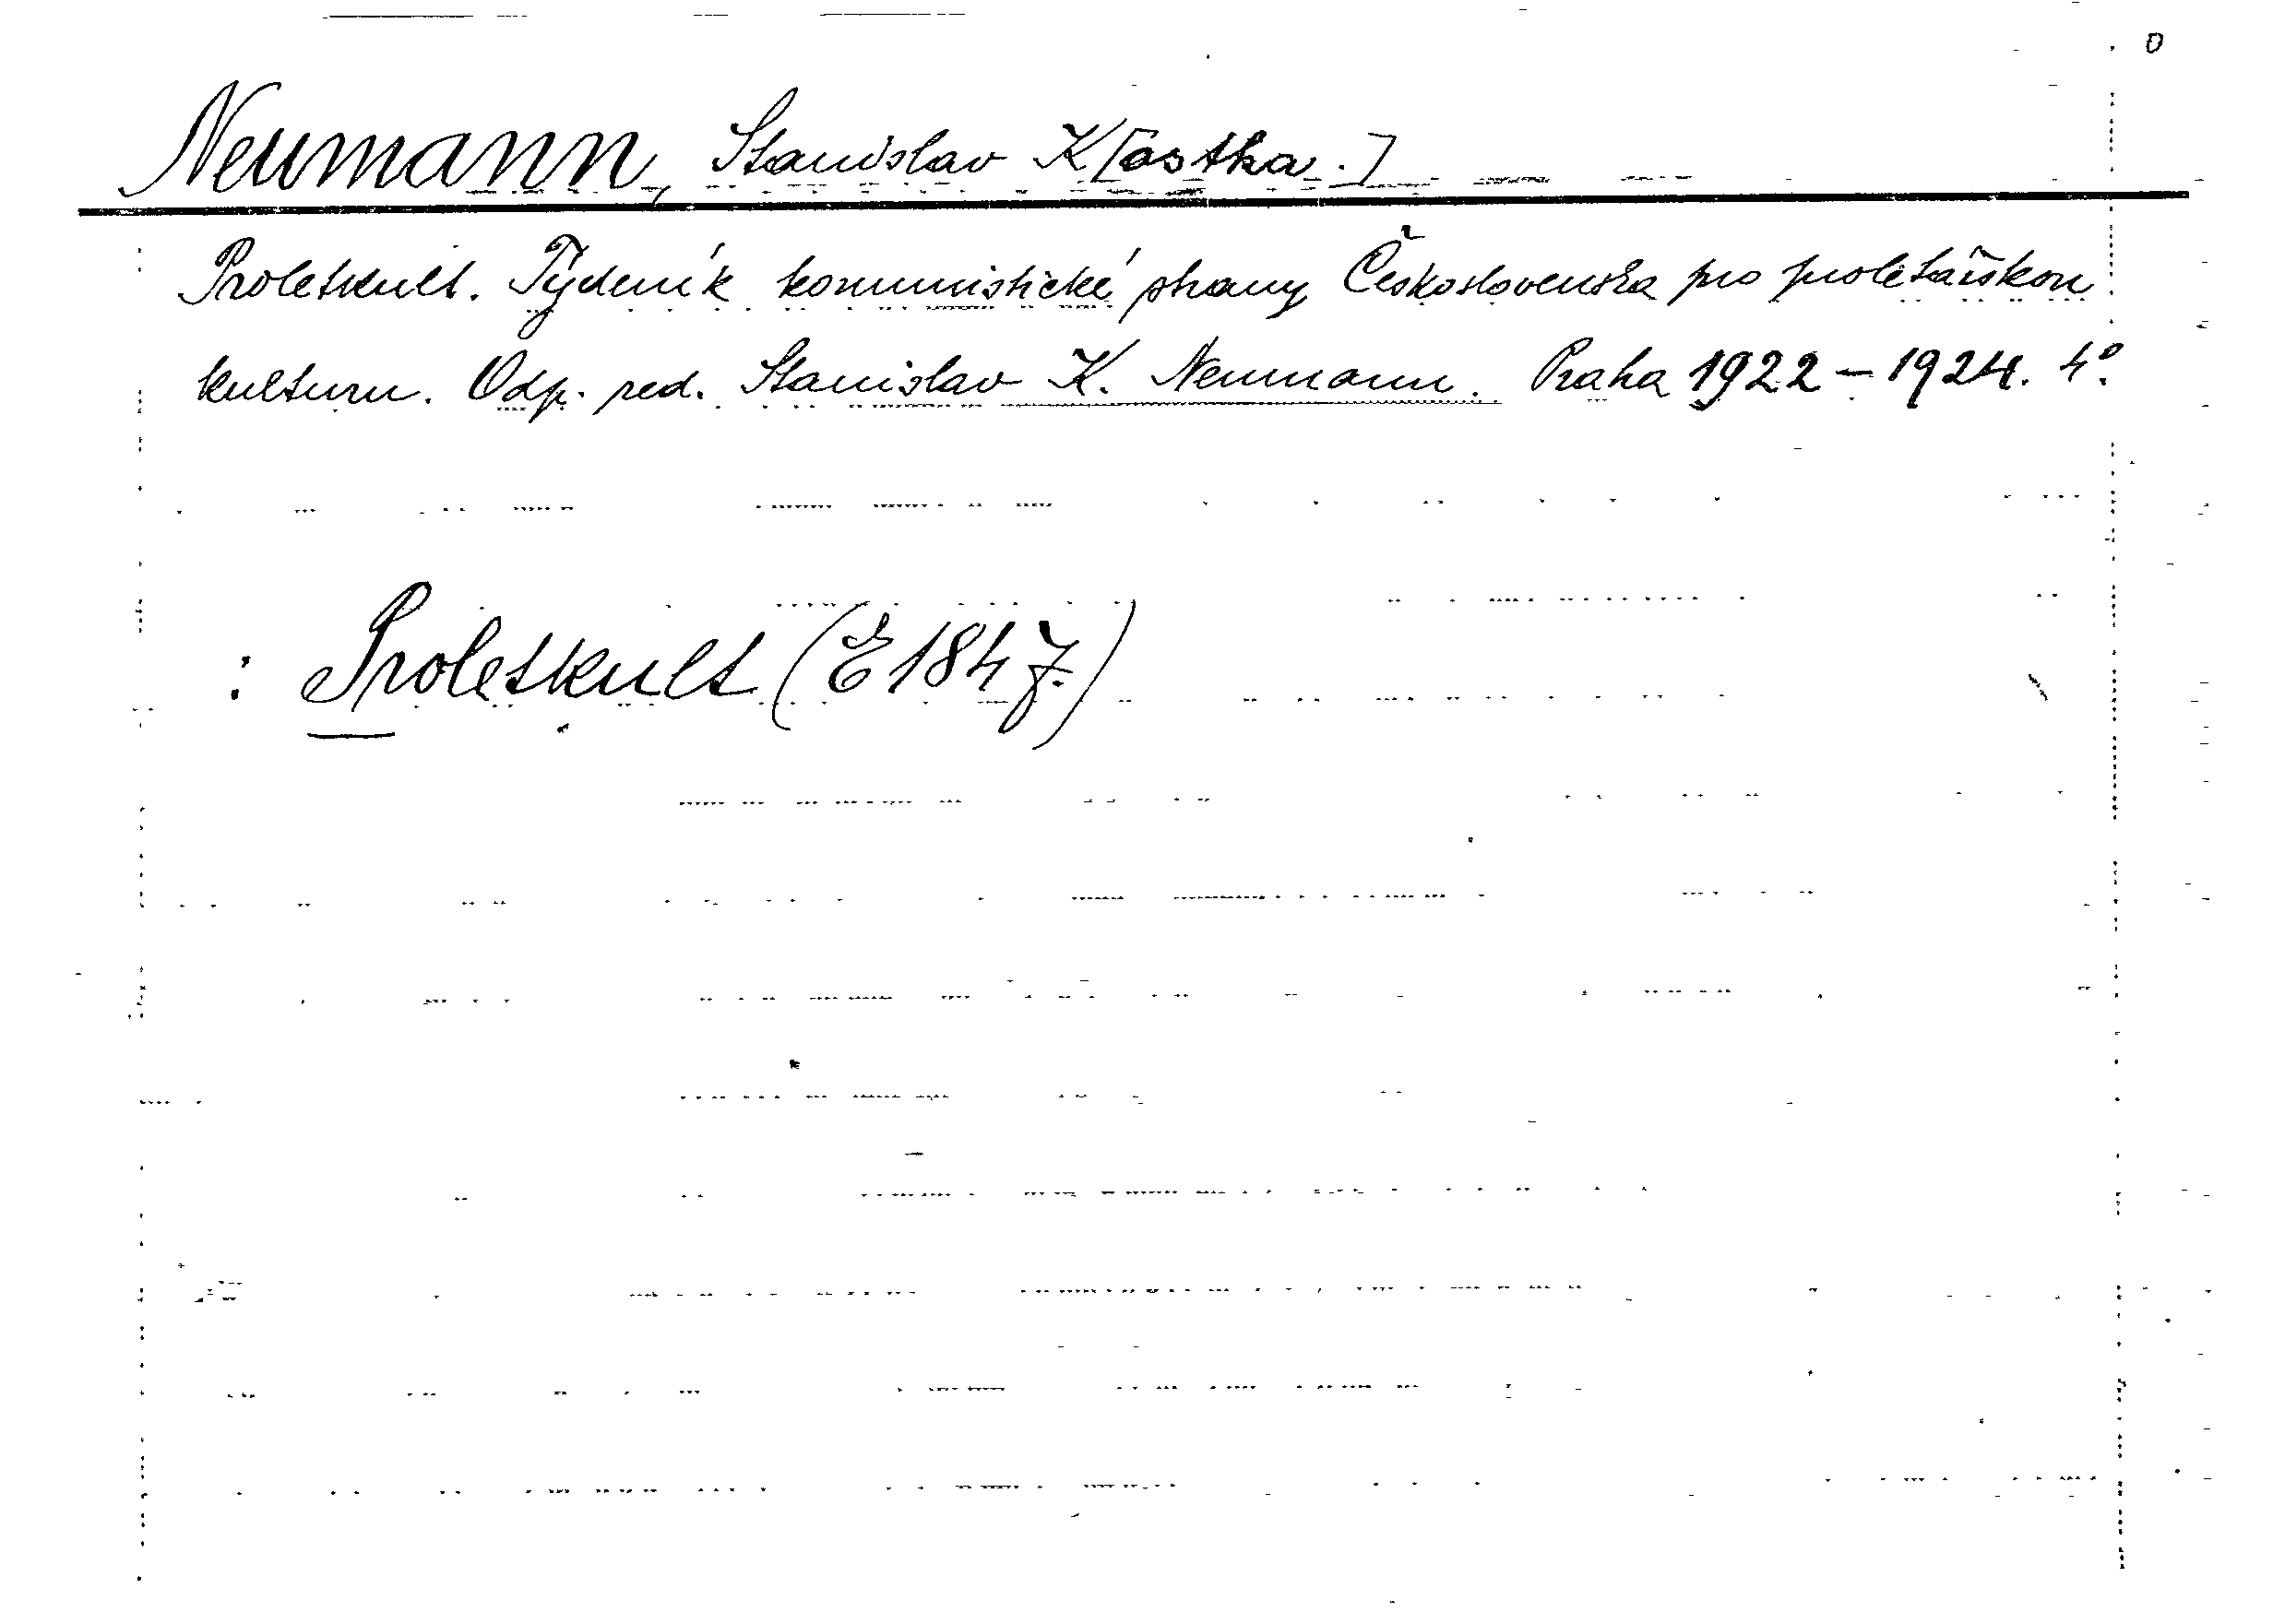 Neumann, Stanislav K[ostka.]
Proletkult. Týdeník komunistické strany Československa pro proletářskou
kulturu. Odp. red. Stanislav K. Neumann. Praha 1922–1924. 4°.
: Proletkult (E 1847.)